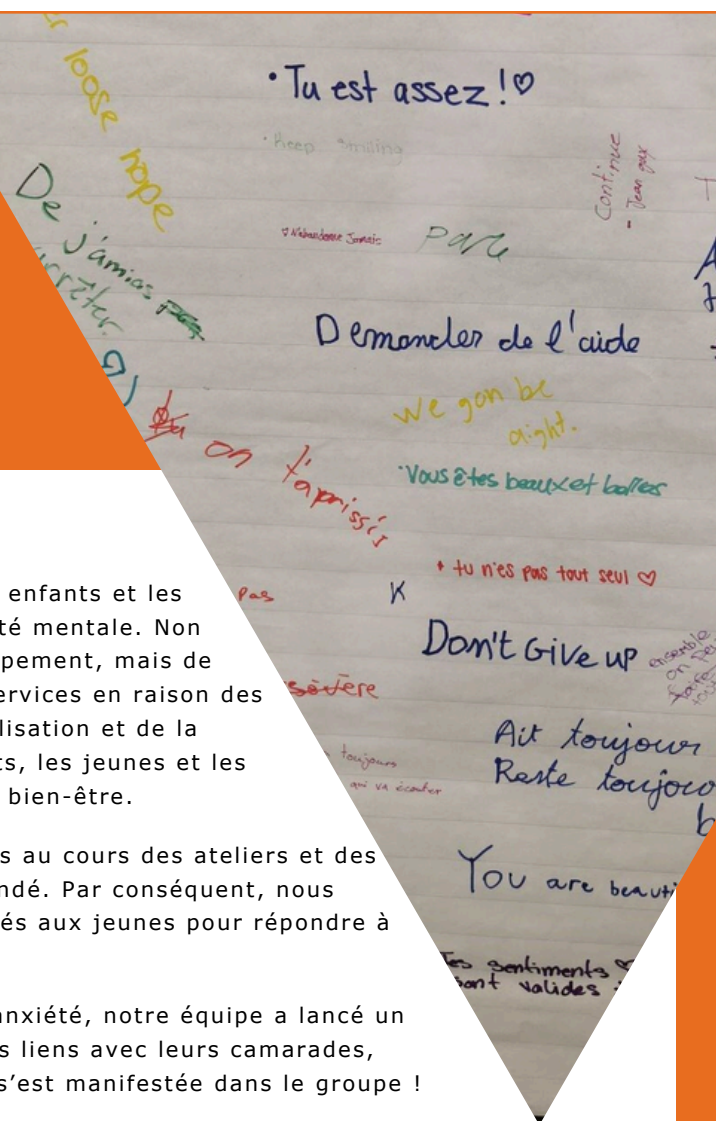 loose hope
• Tu est assez !♡
• Keep smiling
Continue
- Jean guy
De j'amias
arrêter.
♡ N'abandonne Jamais
Parle
Demander de l'aide
We gon be
aight.
on t'aprissis
• Vous êtes beaux et belles
• tu n'es pas tout seul ♡
Pas
K
Don't Give up
ensemble
on peu
faire
tout
Ait toujour
Reste toujou
toujours
qui va écouter
You are beauti
Tes sentiments ♡
sont valides
enfants et les
té mentale. Non
pement, mais de
ervices en raison des
lisation et de la
ts, les jeunes et les
bien-être.
s au cours des ateliers et des
ndé. Par conséquent, nous
és aux jeunes pour répondre à
anxiété, notre équipe a lancé un
s liens avec leurs camarades,
s’est manifestée dans le groupe !